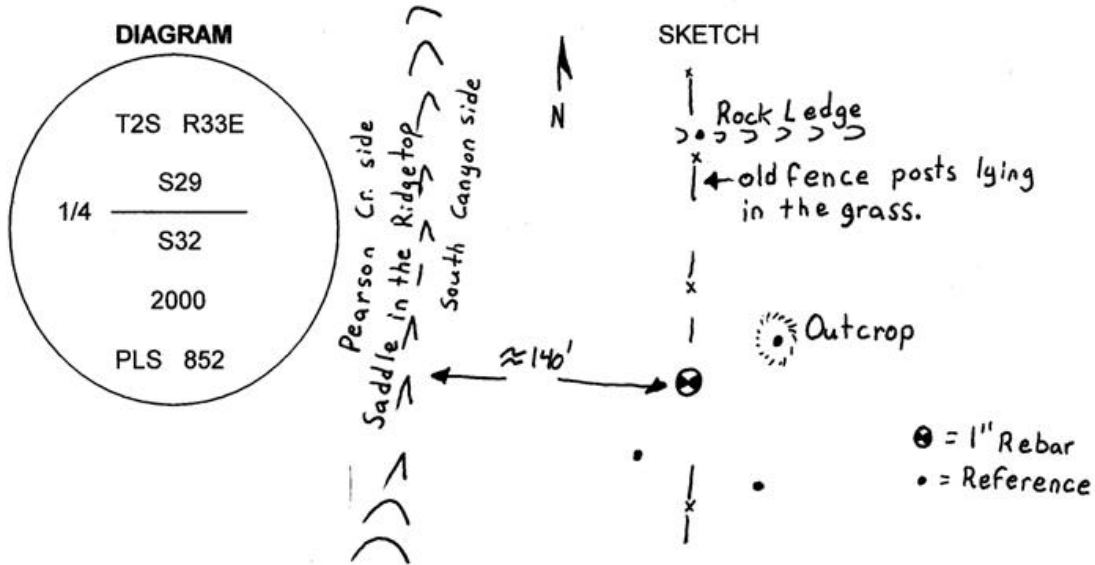 DIAGRAM
T2S R33E
S29
1/4
S32
2000
PLS 852
Pearson Cr. side
Saddle in the Ridgetop
South Canyon side
N
SKETCH
Rock Ledge
old fence posts lying
in the grass.
Outcrop
≈140'
= 1" Rebar
= Reference